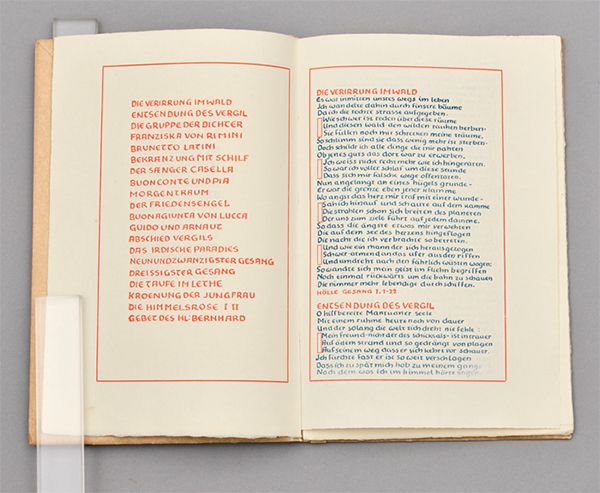 DIE VERIRRUNG IM WALD
ENTSENDUNG DES VERGIL
DIE GRUPPE DER DICHTER
FRANZISKA VON RIMINI
BRUNETTO LATINI
BEKRANZUNG MIT SCHILF
DER SANGER CASELLA
BUONCONTE UND PIA
MORGENTRAUM
DER FRIEDENSENGEL
BUONAGIUNTA VON LUCCA
GUIDO UND ARNAUT
ABSCHIED VERGILS
DAS IRDISCHE PARADIES
NEUNUNDZWANZIGSTER GESANG
DREISSIGSTER GESANG
DIE TAUFE IM LETHE
KROENUNG DER JUNGFRAU
DIE HIMMELSROSE I II
GEBET DES HL: BERNHARD
DIE VERIRRUNG IM WALD
Es war inmitten unsres wegs im leben
Ich wandelte dahin durch finstre bäume
Da ich die rechte strasse aufgegeben.
Wie schwer ist reden über diese räume
Und diesen wald · den wilden rauhen herben ·
Sie füllen noch mir schrecken meine träume,
So schlimm sind sie dass wenig mehr ist sterben ·
Doch schildr ich alle dinge die mir nahten
Ob jenes guts das dort war zu erwerben.
Ich weiss nicht recht mehr wie ich hingeraten.
So war ich voller schlaf um diese stunde
Dass sich mir falsche wege offentaten.
Nun angelangt an eines hügels grunde ·
Er war die grenze eben jener klamme
Wo angst das herz mir traf mit einer wunde ·
Sah ich hinauf und schaute auf dem kamme
Die strahlen schon sich breiten des planeten
Der uns zum ziele führt auf jedem damme.
So dass die ängste etwas mir verwehten
Die auf dem see des herzens hingeflogen
Die nacht die ich verbrachte so betreten.
Und wie ein mann der sich herausgezogen
Schwer atmend an das ufer aus den riffen
Und umdreht nach den fährlich wüsten wogen:
So wandte sich mein geist im fliehn begriffen
Noch einmal rückwärts um die bahn zu schauen
Die nimmer mehr lebendige durchschiffen.
HÖLLE GESANG I. 1-27
ENTSENDUNG DES VERGIL
O hilfbereite Mantuaner seele
Mit einem ruhme heute noch von dauer
Und der solang die welt sich dreht nie fehle :
Mein freund · nicht der des schicksals · ist in trauer
Auf ödem strand und so gedrängt von plagen
Auf seinem weg dass er sich kehrt vor schauer.
Ich fürchte fast er ist so weit verschlagen
Dass ich zu spät mich hob zu meinem gange
Nach dem was ich im himmel hörte sagen